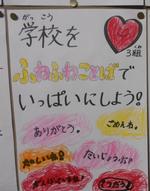 がっこう
学校を
くみ
3組
ふわふわことばで
いっぱいにしよう!
ありがとう。
ごめんね。
だいじょうぶ?